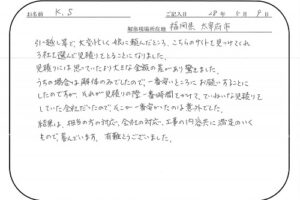 お名前 K.S ご記入日 28年5月9日
解体現場所在地 福岡県太宰府市
引っ越し等で、大変忙しく娘に頼んだところ、こちらのサイトを見つけてくれ
3社を選んで見積りをとることになりました。
見積りには思っていたより大きな金額の差があり驚きました。
うちの場合は解体のみでしたので、一番安いところにお願いすることに
したのですが、それが見積りの際一番時間をかけて、ていねいな見積りを
していた会社だったので、そこが一番安かったのは意外でした。
結果は、担当の方の対応、会社の対応、工事の内容共に満足のいく
もので喜んでいます。有難とうございました。